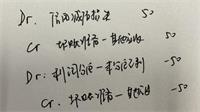 Dr: 信用减值损失 50
Cr. 坏账准备—其他应收 50
Dr: 利润分配—未分配利 -50
Cr. 坏账准备—其他应收 -50